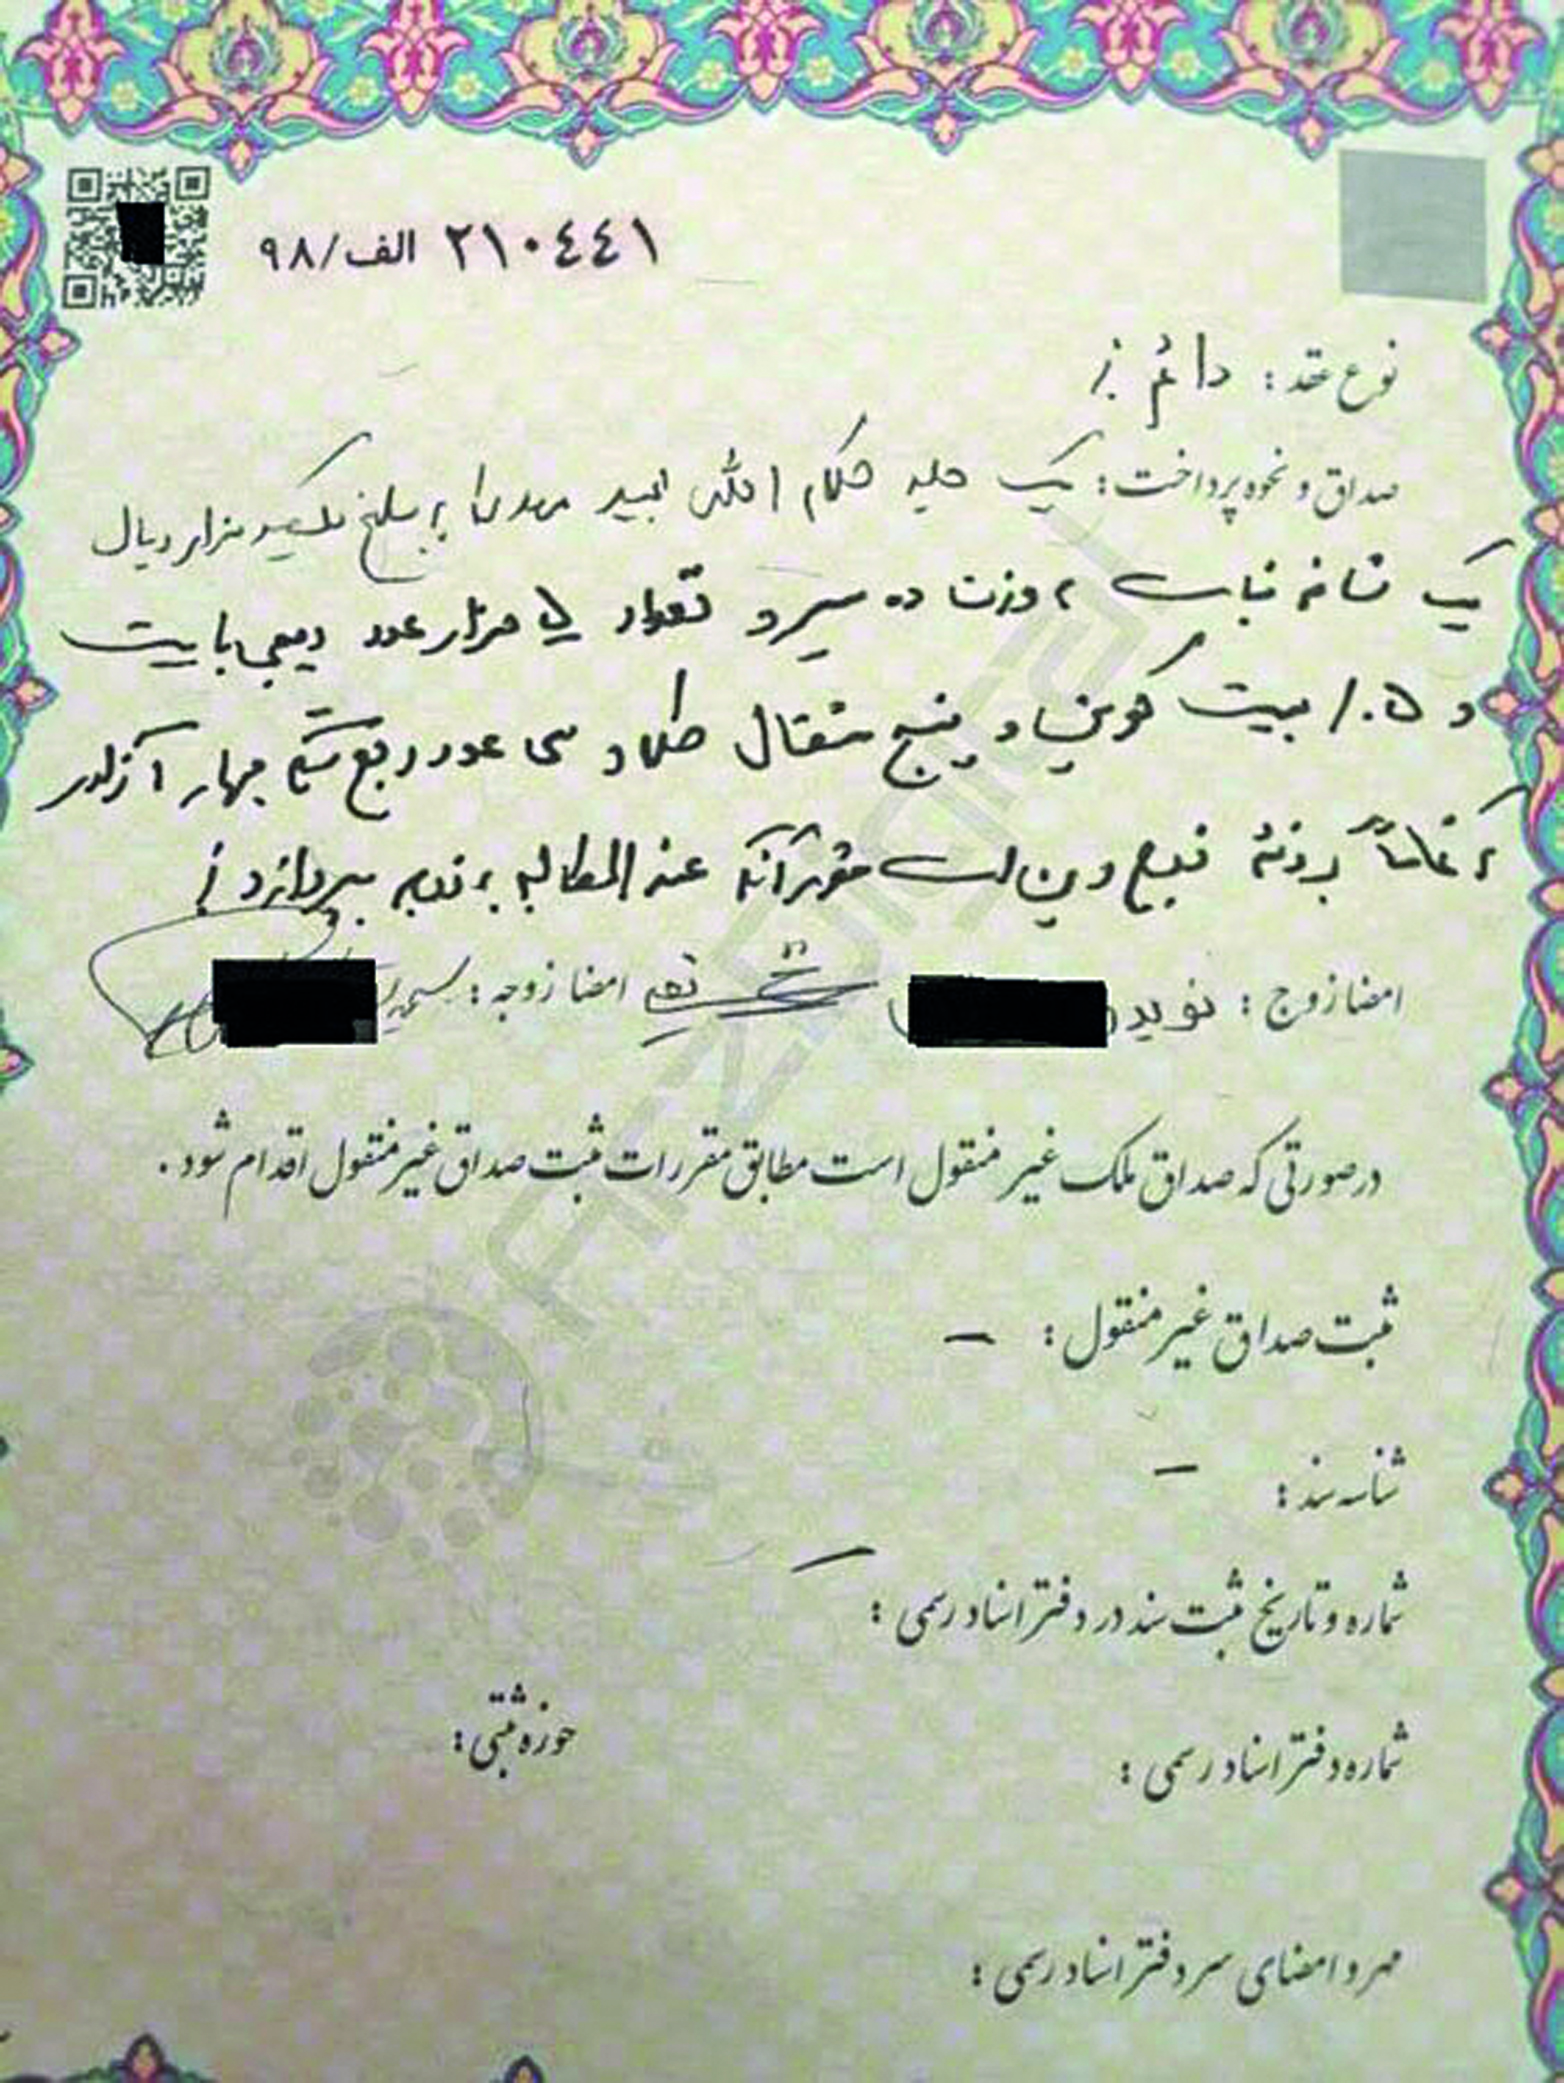 ۲۱۰۴۴۱ الف/۹۸
نوع عقد: دائم
صداق و نحوه پرداخت: یک جلد کلام الله مجید مهدی به مبلغ یکصد هزار ریال
یک شاخه نبات به وزن ده سیر و تعداد هزار عدد دیجی بایت
و ۰.۵/ بیت کوین و پنج مثقال طلا و سی عدد ربع سکه بهار آزادی
که تماماً بر ذمه زوج دین است مقرر آنکه عندالمطالبه به زوجه بپردازد
امضا زوج: نوید امضا زوجه:
در صورتی که صداق ملک غیر منقول است مطابق مقررات ثبت صداق غیر منقول اقدام شود.
ثبت صداق غیر منقول: –
شناسه سند: –
شماره و تاریخ ثبت سند در دفتر اسناد رسمی: –
شماره دفتر اسناد رسمی: حوزه ثبتی:
مهر و امضای سردفتر اسناد رسمی: